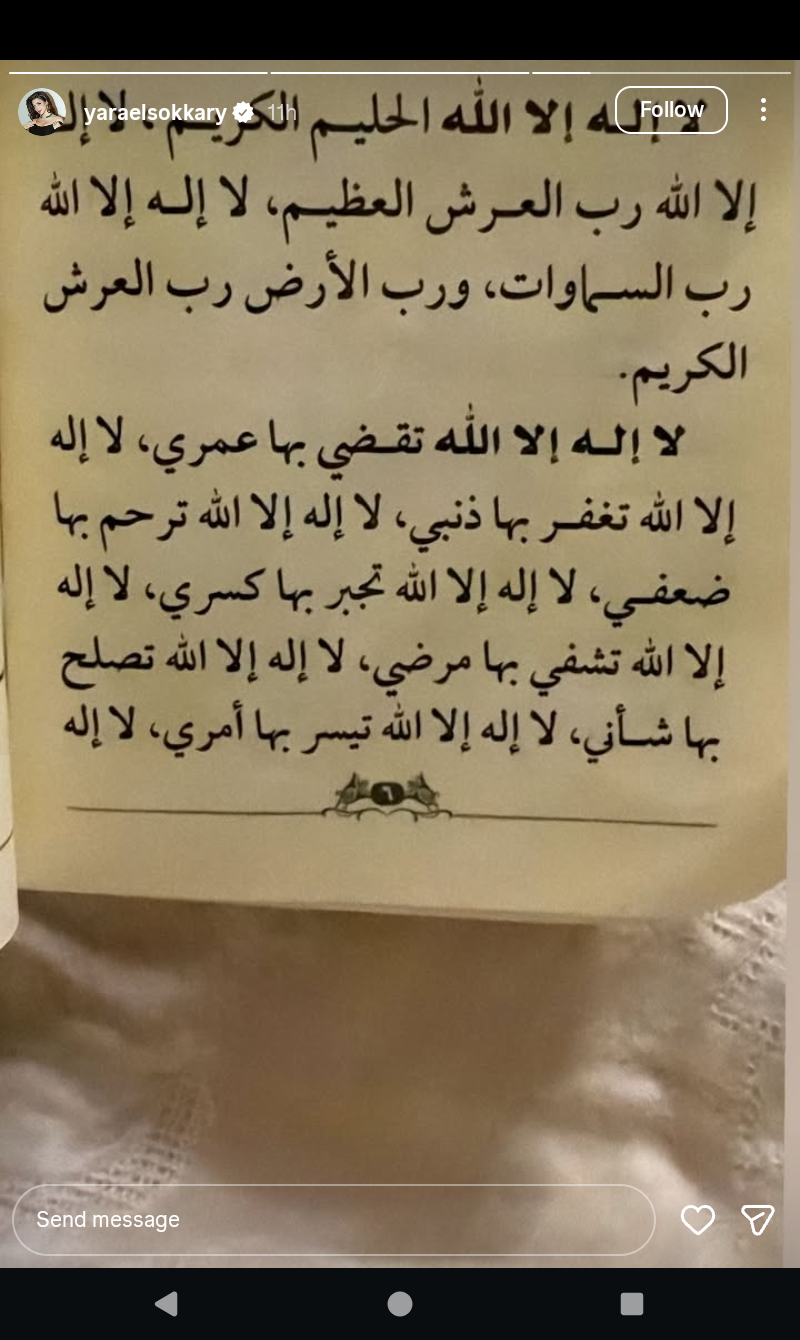 yaraelsokkary 11h
Follow
لا إلـه إلا الله الحليـم الكريـم، لا إلـه
إلا الله رب العـرش العظيـم، لا إلـه إلا الله
رب السـماوات، ورب الأرض رب العرش
الكريم.
لا إلـه إلا الله تقـضي بها عمري، لا إله
إلا الله تغفـر بها ذنبي، لا إله إلا الله ترحم بها
ضعفـي، لا إله إلا الله تجبر بها كسري، لا إله
إلا الله تشفي بها مرضي، لا إله إلا الله تصلح
بها شـأني، لا إله إلا الله تيسر بها أمري، لا إله
٦
Send message